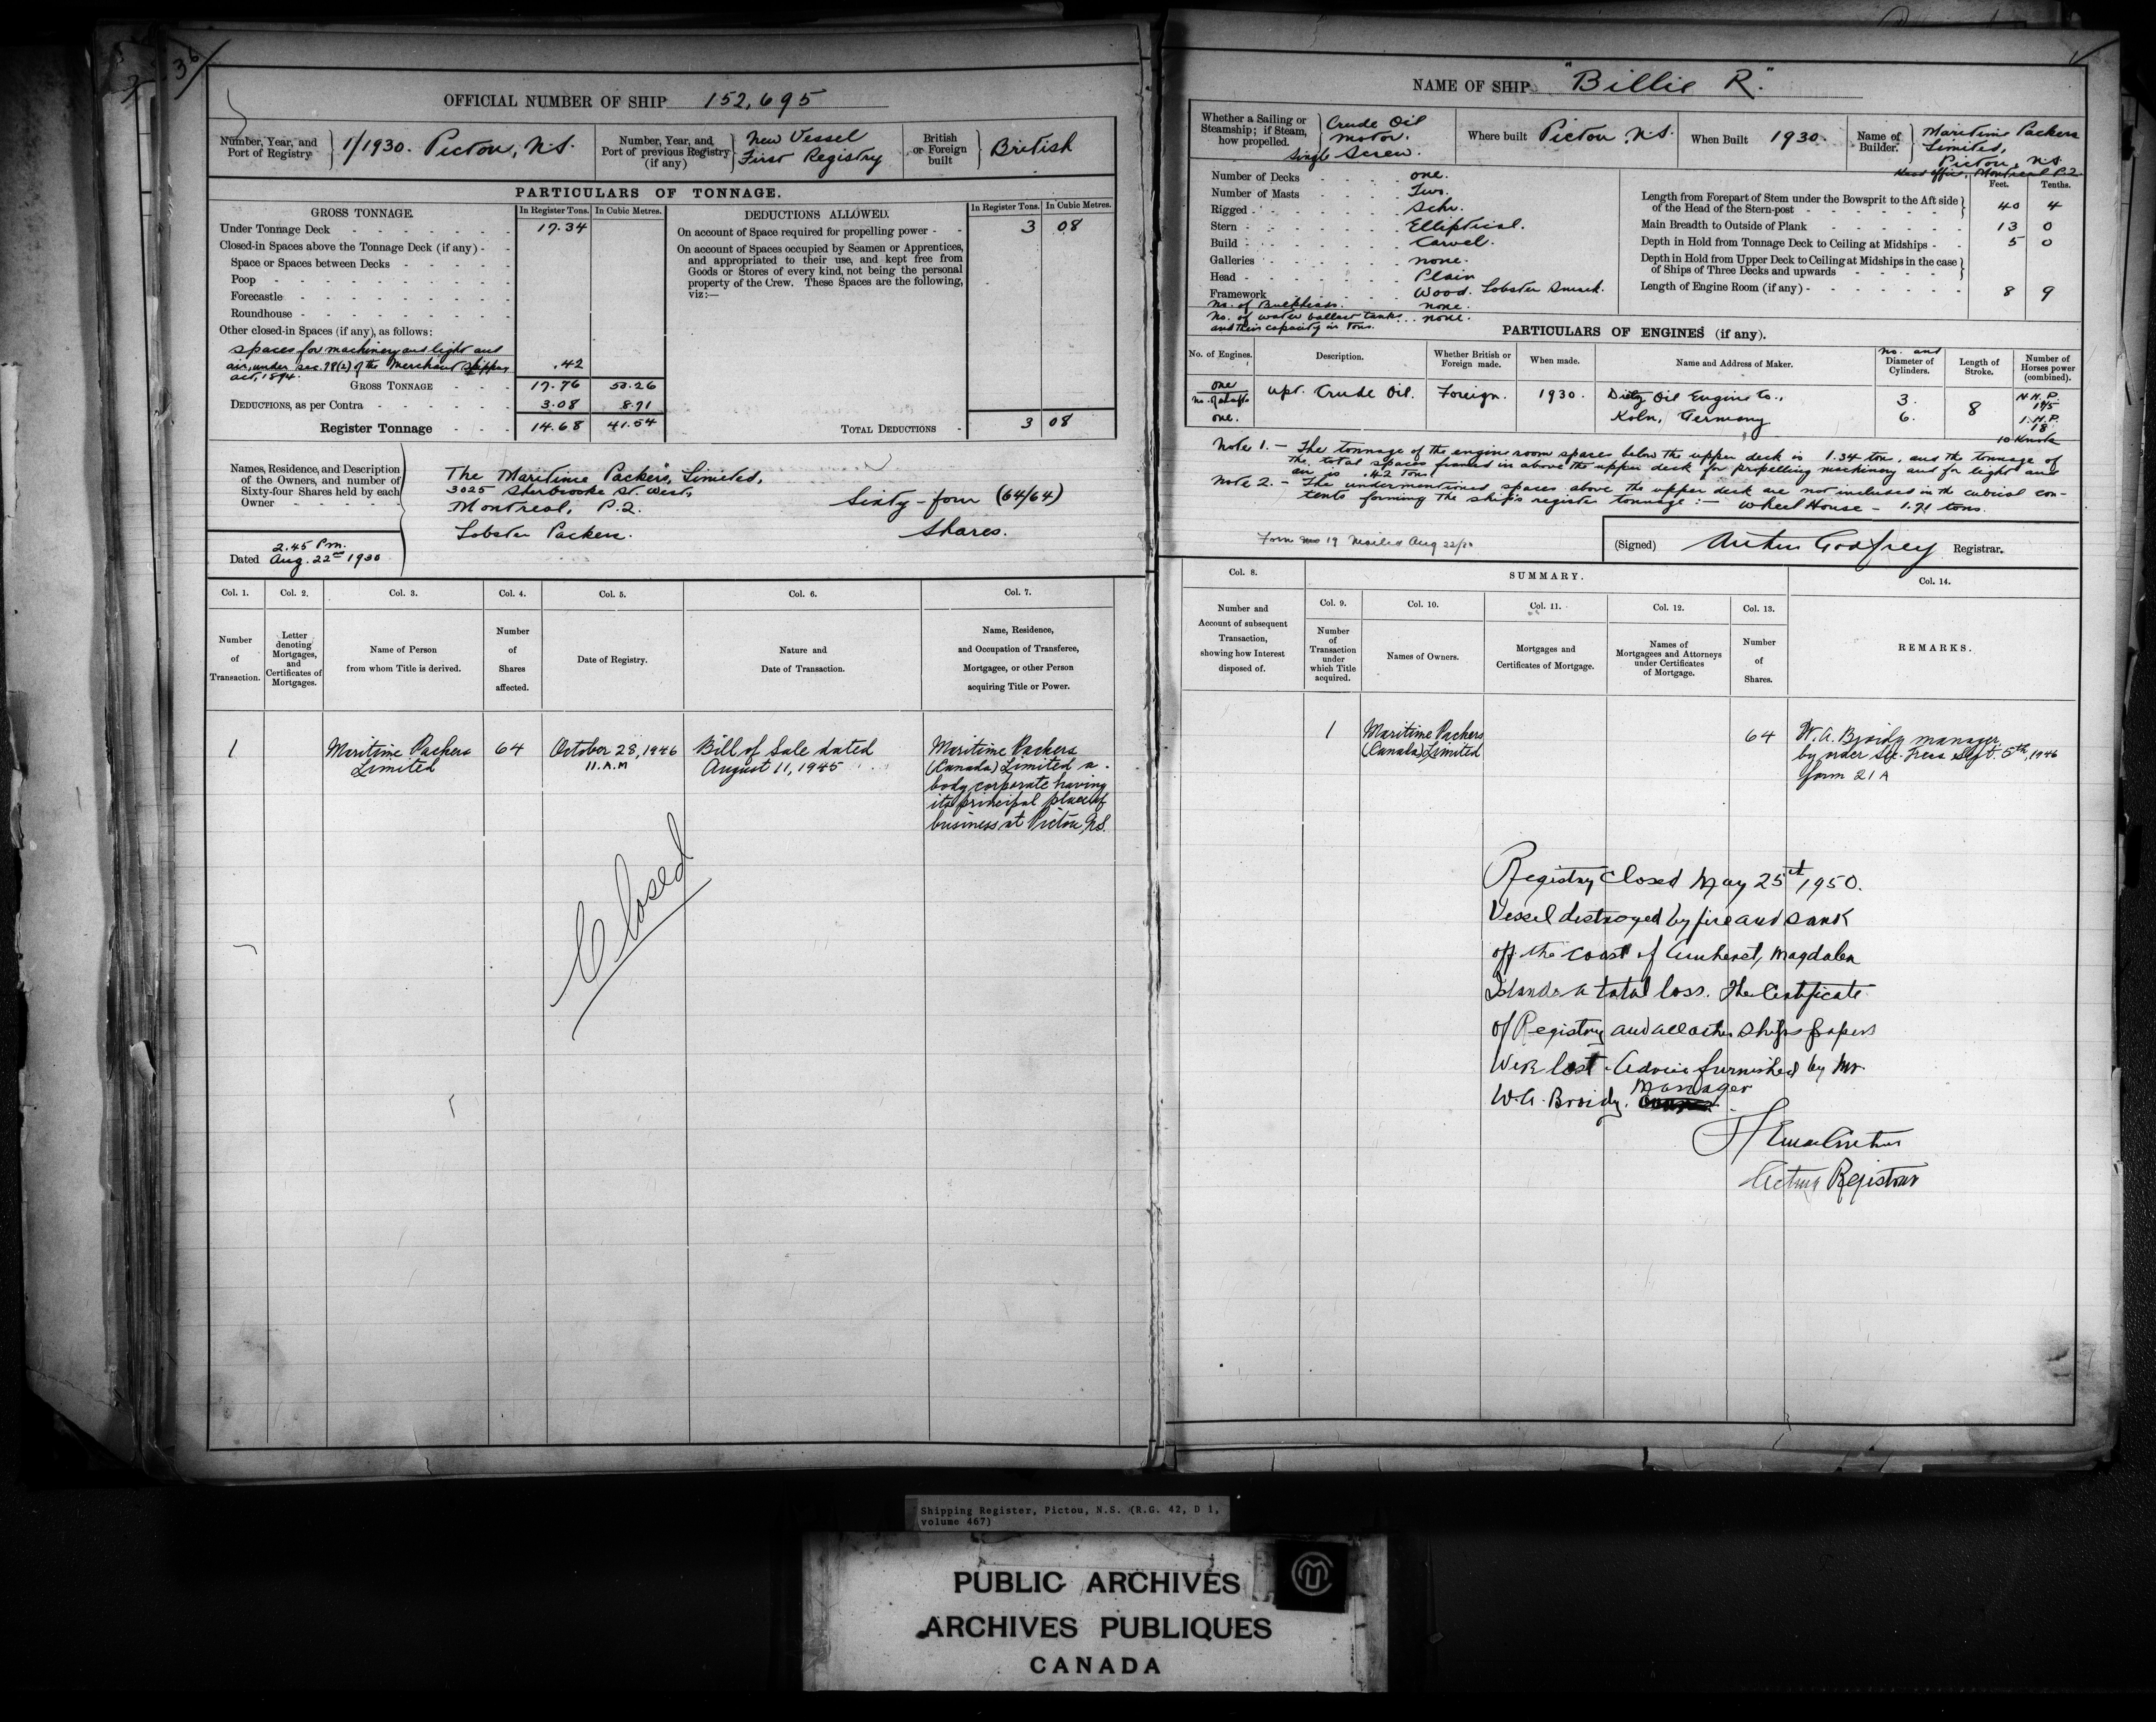 36
OFFICIAL NUMBER OF SHIP 152,695
Number, Year, and Port of Registry } 1/1930. Pictou, N.S.
Number, Year, and Port of previous Registry (if any) } New Vessel First Registry
British or Foreign built } British
PARTICULARS OF TONNAGE.
GROSS TONNAGE. In Register Tons. In Cubic Metres.
Under Tonnage Deck 17.34
Closed-in Spaces above the Tonnage Deck (if any)
Space or Spaces between Decks
Poop
Forecastle
Roundhouse
Other closed-in Spaces (if any), as follows:
spaces for machinery and light and
air, under sec. 78(2) of the Merchant Shipping .42
act, 1894.
GROSS TONNAGE 17.76 50.26
DEDUCTIONS, as per Contra 3.08 8.71
Register Tonnage 14.68 41.54
DEDUCTIONS ALLOWED. In Register Tons. In Cubic Metres.
On account of Space required for propelling power 3 08
On account of Spaces occupied by Seamen or Apprentices,
and appropriated to their use, and kept free from
Goods or Stores of every kind, not being the personal
property of the Crew. These Spaces are the following,
viz:—
TOTAL DEDUCTIONS 3 08
Names, Residence, and Description
of the Owners, and number of
Sixty-four Shares held by each
Owner
The Maritime Packers, Limited,
3025 Sherbrooke St. West,
Montreal, P.2.
Lobster Packers.
Sixty-four (64/64)
Shares.
2.45 Pm.
Dated Aug. 22nd 1930
Col. 1. Col. 2. Col. 3. Col. 4. Col. 5. Col. 6. Col. 7.
Number of Transaction.
Letter denoting Mortgages, and Certificates of Mortgages.
Name of Person from whom Title is derived.
Number of Shares affected.
Date of Registry.
Nature and Date of Transaction.
Name, Residence, and Occupation of Transferee, Mortgagee, or other Person acquiring Title or Power.
1
Maritime Packers
Limited
64
October 28, 1946
11.A.M
Bill of Sale dated
August 11, 1945
Maritime Packers
(Canada) Limited a
body corporate having
its principal place of
business at Pictou, N.S.
Closed
NAME OF SHIP "Billie R."
Whether a Sailing or Steamship; if Steam, how propelled. } Crude Oil motor. Single Screw.
Where built Pictou, N.S.
When Built 1930.
Name of Builder. } Maritime Packers Limited, Pictou, N.S.
Head office, Montreal P.2.
Number of Decks one.
Number of Masts Two.
Rigged Schr.
Stern Elliptical.
Build Carvel.
Galleries none.
Head Plain
Framework Wood. Lobster Smack.
No. of Bulkheads. none.
No. of water ballast tanks none.
and their capacity in tons.
Feet. Tenths.
Length from Forepart of Stem under the Bowsprit to the Aft side of the Head of the Stern-post 40 4
Main Breadth to Outside of Plank 13 0
Depth in Hold from Tonnage Deck to Ceiling at Midships 5 0
Depth in Hold from Upper Deck to Ceiling at Midships in the case of Ships of Three Decks and upwards
Length of Engine Room (if any) 8 9
PARTICULARS OF ENGINES (if any).
No. of Engines. Description. Whether British or Foreign made. When made. Name and Address of Maker. No. and Diameter of Cylinders. Length of Stroke. Number of Horses power (combined).
one
No. of shafts
one.
Upt. Crude Oil. Foreign. 1930.
Oil Engine Co.,
Koln, Germany
3.
6.
8
N.H.P.
I.H.P.
18
10 Knots
Note 1.— The tonnage of the engine room spaces below the upper deck is 1.34 tons, and the tonnage of
the total spaces framed in above the upper deck for propelling machinery and for light and
air is .42 tons.
Note 2.— The undermentioned spaces above the upper deck are not included in the cubical con-
tents forming the ship's register tonnage:— Wheel House — 1.71 tons.
Form no 19 Mailed Aug 22/30
(Signed) Arthur Godfrey Registrar.
Col. 8. SUMMARY. Col. 14.
Col. 9. Col. 10. Col. 11. Col. 12. Col. 13.
Number and Account of subsequent Transaction, showing how Interest disposed of.
Number of Transaction under which Title acquired.
Names of Owners.
Mortgages and Certificates of Mortgage.
Names of Mortgagees and Attorneys under Certificates of Mortgage.
Number of Shares.
REMARKS.
1
Maritime Packers
(Canada) Limited
64
W.A. Broidy manager
by order Sec. Treas Sept. 5th, 1946
form 21A
Registry Closed May 25th, 1950.
Vessel destroyed by fire and sank
off the coast of Amherst, Magdalen
Islands a total loss. The Certificate
of Registry and all other ships papers
were lost. Advice furnished by Mr.
W.A. Broidy. Manager
Acting Registrar
Shipping Register, Pictou, N.S. (R.G. 42, D 1,
volume 467)
PUBLIC ARCHIVES
ARCHIVES PUBLIQUES
CANADA